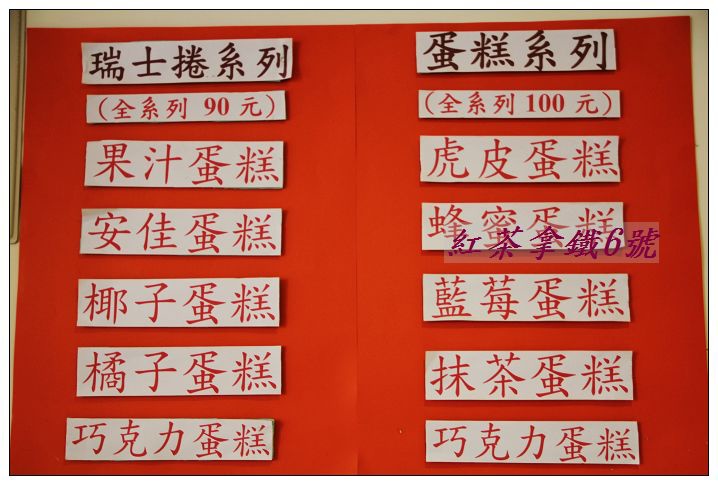 瑞士捲系列
(全系列 90 元)
果汁蛋糕
安佳蛋糕
椰子蛋糕
橘子蛋糕
巧克力蛋糕
蛋糕系列
(全系列 100 元)
虎皮蛋糕
蜂蜜蛋糕
紅茶拿鐵6號
藍莓蛋糕
抹茶蛋糕
巧克力蛋糕